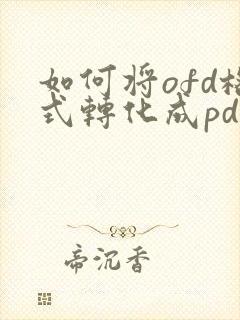 如何将ofd格
式轉化成pd
帝沉香